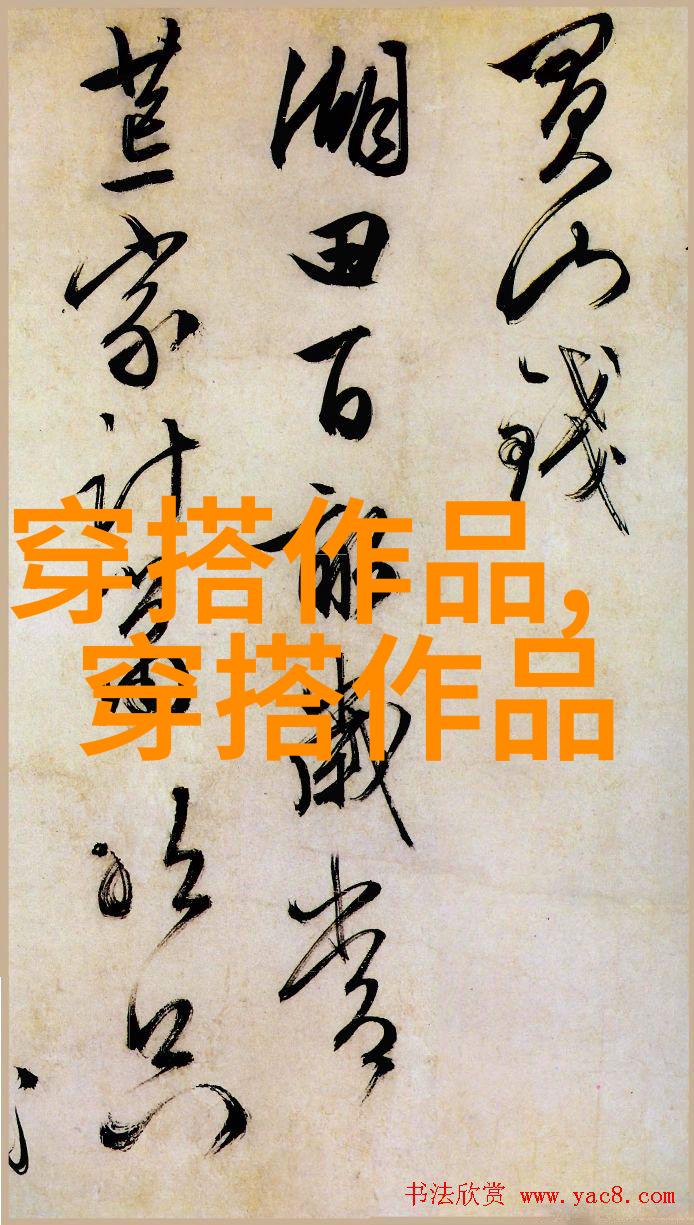 買山錢
湖田百畝歲常
荒家計
穿搭作品,
穿搭作品
书法欣赏 www.yac8.com